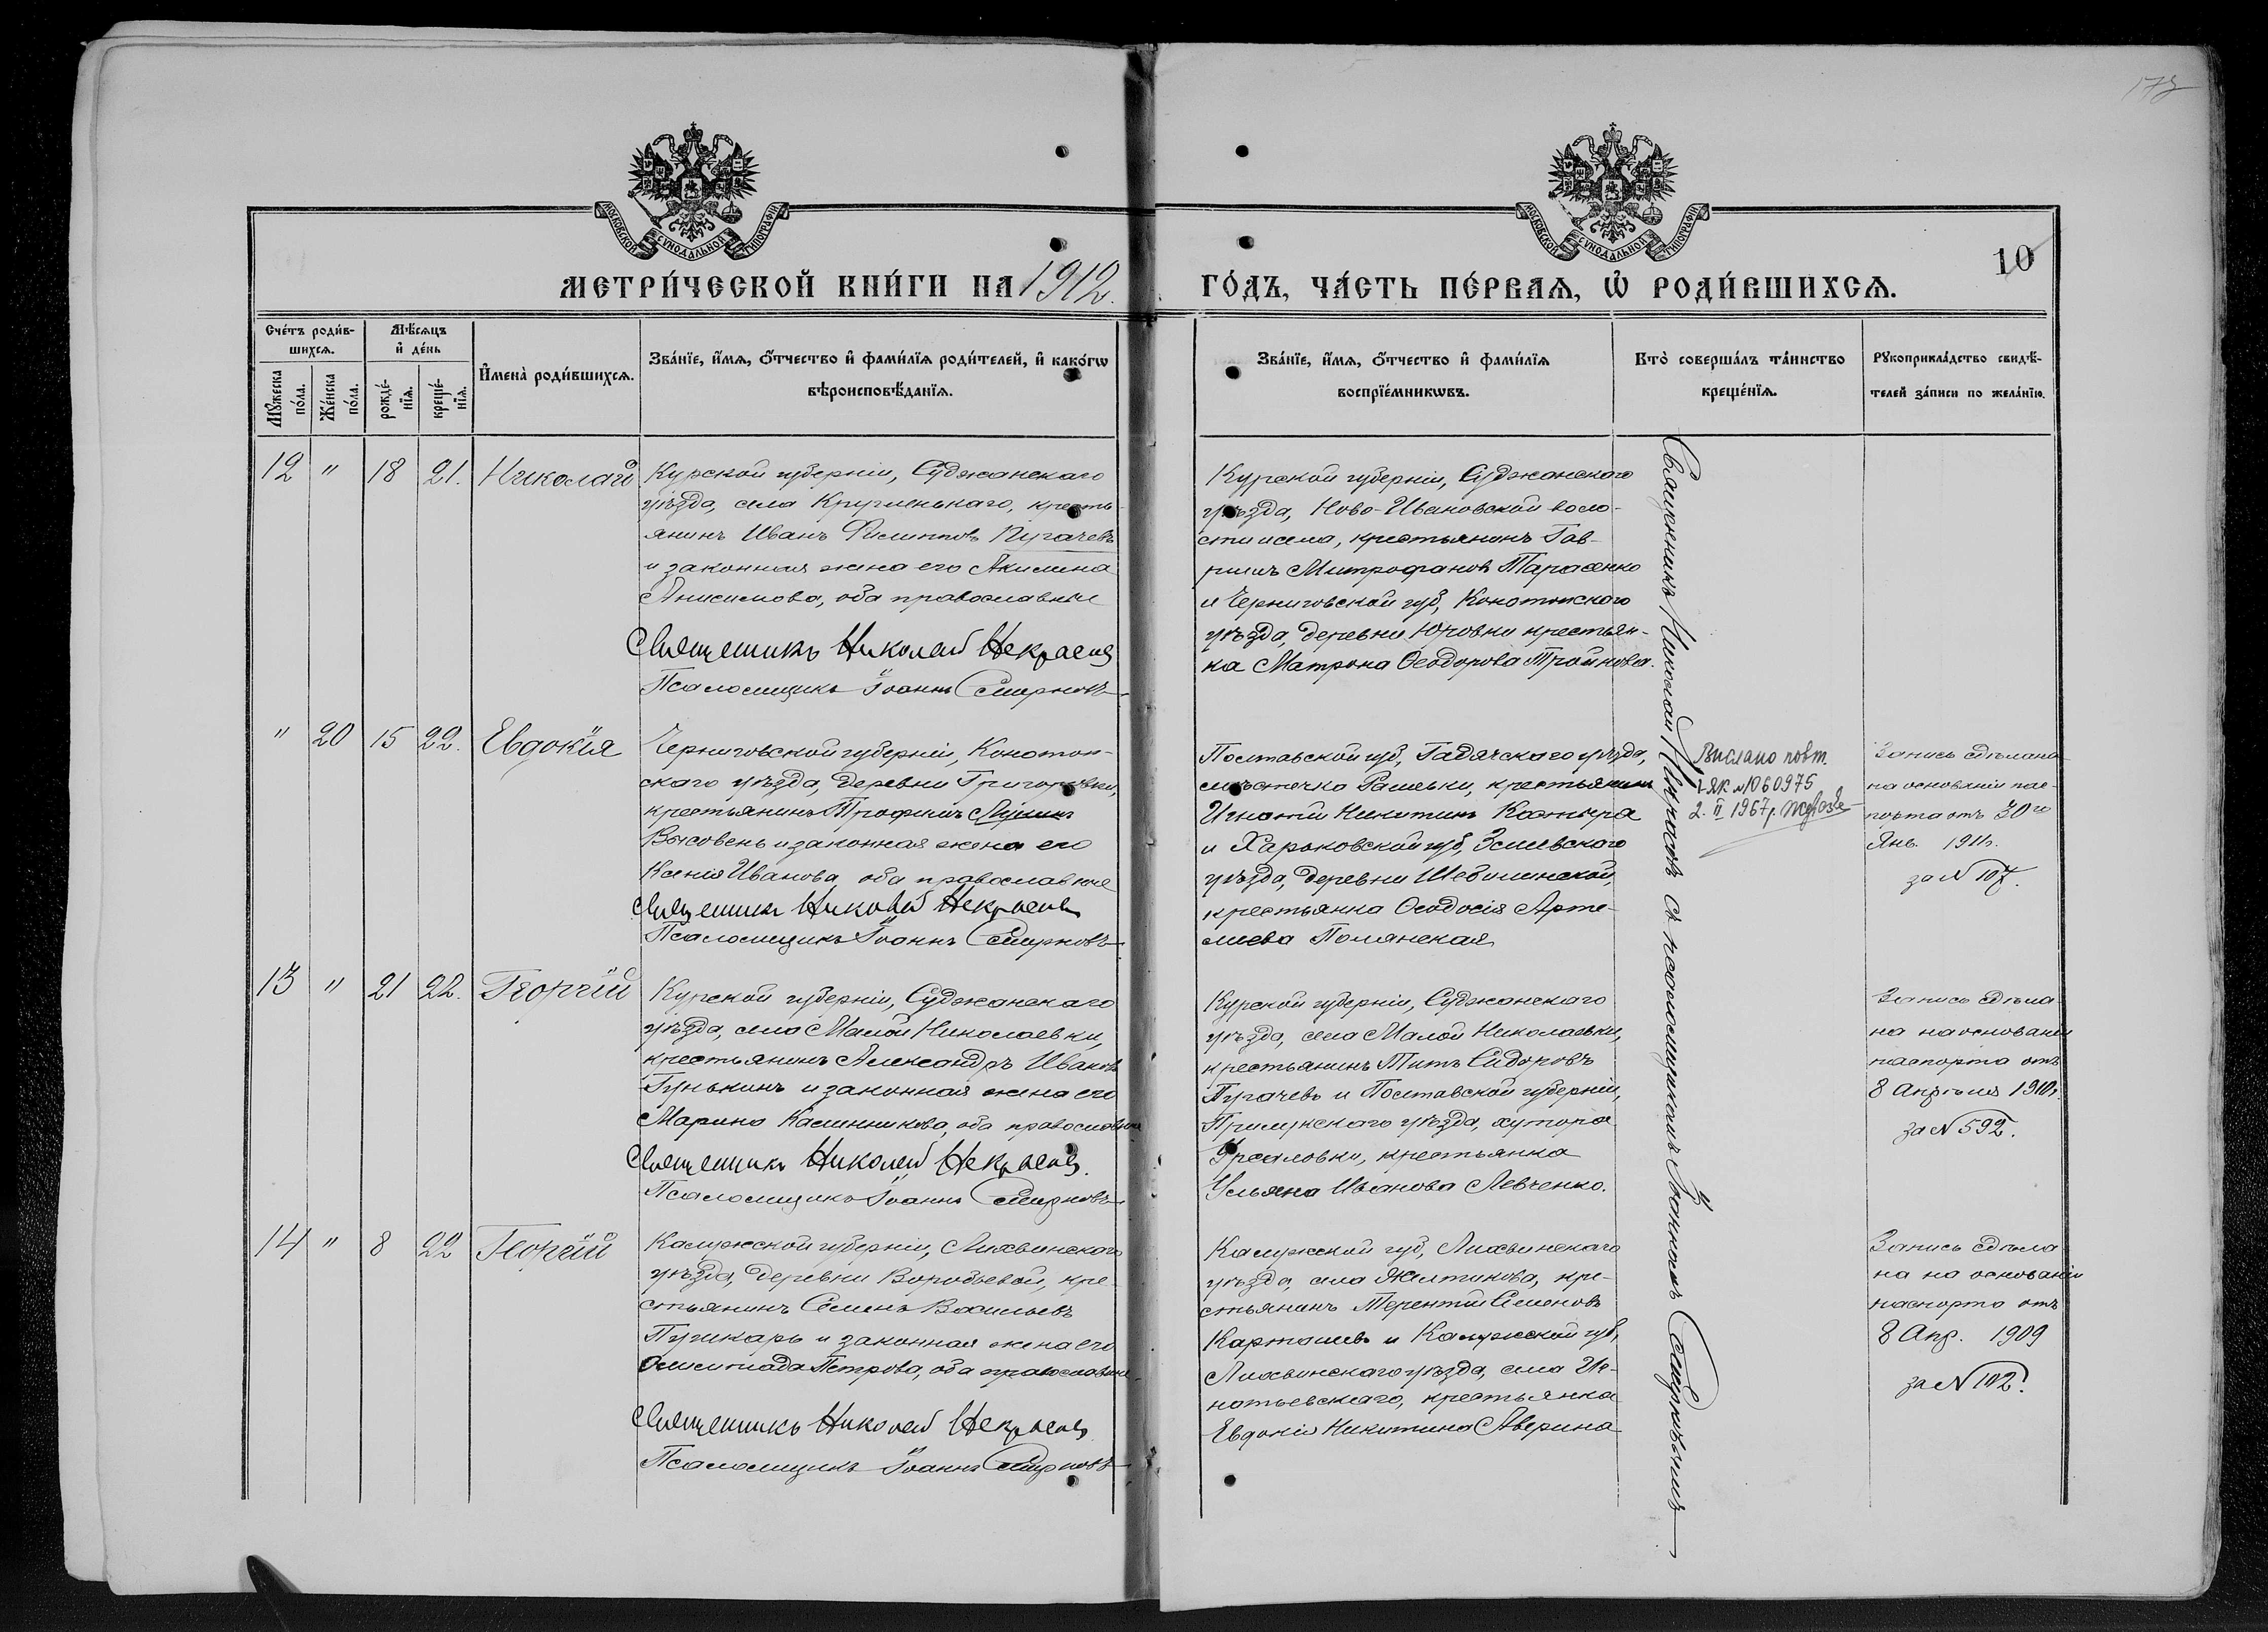 173
МОСКОВСКОЙ СѴНОДАЛЬНОЙ ТИПОГРАФІИ
МОСКОВСКОЙ СѴНОДАЛЬНОЙ ТИПОГРАФІИ
МЕТРИ́ЧЕСКОЙ КНИ́ГИ НА 1912.
ГО́ДЪ, ЧА́СТЬ ПЕ́РВАѦ, Ѡ҆ РОДИ́ВШИХСѦ.
10
Сче́тъ роди́в-
шихсѧ.
Мѣ́сѧцъ
и҆ де́нь
Му́жеска
по́ла.
Же́нска
по́ла.
рожде́-
нїѧ.
креще́-
нїѧ.
И҆мена̀ роди́вшихсѧ.
Зва́нїе, и҆́мѧ, ѻ҆́тчество и҆ фами́лїѧ роди́телей, и҆ како́гѡ
вѣроисповѣ́данїѧ.
Зва́нїе, и҆́мѧ, ѻ҆́тчество и҆ фами́лїѧ
воспрїе́мникѡвъ.
Кто̀ соверша́лъ та́инство
креще́нїѧ.
Рꙋкоприкла́дство свидѣ́-
телей за́писи по жела́нїю.
12 " 18 21. Николай
Курской губерніи, Суджанскаго
уѣзда, села Кругленькаго, кресть-
янинъ Иванъ Филипповъ Пугачевъ
и законная жена его Акилина
Анисимова, оба православные
Священникъ Николай Некрасов
Псаломщикъ Іоаннъ Смирновъ
Курской губерніи, Суджанскаго
уѣзда, Ново-Ивановской воло-
сти и села, крестьянинъ Гав-
риилъ Митрофановъ Тарасенко
и Черниговской губ, Конотопскаго
уѣзда, деревни Юровки крестьян-
ка Матрона Ѳеодорова Тройнова.
" 20 15 22. Евдокія
Черниговской губерніи, Конотоп-
скаго уѣзда, деревни Григоровки,
крестьянинъ Трофимъ
Высовень и законная жена его
Ксенія Иванова оба православные
Священникъ Николай Некрасов
Псаломщикъ Іоаннъ Смирновъ
Полтавской губ, Гадячскаго уѣзда,
мѣстечка Рашевки, крестьянинъ
Игнатій Никитинъ
и Харьковской губ, Зміевскаго
уѣзда, деревни Шебелинской,
крестьянка Ѳеодосія Арте-
міева Полянская
Вислано повт.
I-ЯК №1060975
2. II 1967р.
Запись сдѣлана
на основаніи пас-
порта отъ 30го
Янв. 1911г.
за № 107.
13 " 21 22. Георгій
Курской губерніи, Суджанскаго
уѣзда, села Малой Николаевки,
крестьянинъ Александръ Ивановъ
Гунькинъ и законная жена его
Марина Калинникова, оба православные
Священникъ Николай Некрасов.
Псаломщикъ Іоаннъ Смирновъ
Курской губерніи, Суджанскаго
уѣзда, села Малой Николаевки,
крестьянинъ Титъ Сидоровъ
Пугачевъ и Полтавской губерніи,
Прилукскаго уѣзда, хутора
крестьянка
Ульяна Иванова Левченко.
Запись сдѣла-
на на основаніи
паспорта отъ
8 Апрѣля 1910г.
за № 592.
14 " 8 22 Георгій
Калужской губерніи, Лихвинскаго
уѣзда, деревни Воробьевой, кре-
стьянинъ Семенъ Васильевъ
Пушкарь и законная жена его
Олимпіада Петрова, оба православные
Священникъ Николай Некрасов
Псаломщикъ Іоаннъ Смирновъ
Калужской губ, Лихвинскаго
уѣзда, села Желтикова, кре-
стьянинъ Терентій Семеновъ
Карташевъ и Калужской губ,
Лихвинскаго уѣзда, села Иг-
натьевскаго, крестьянка
Евдокія Никитина Аверина
Запись сдѣла-
на на основаніи
паспорта отъ
8 Апр. 1909
за № 102.
Священникъ Николай Некрасовъ съ псаломщикомъ Іоанномъ Смирновымъ